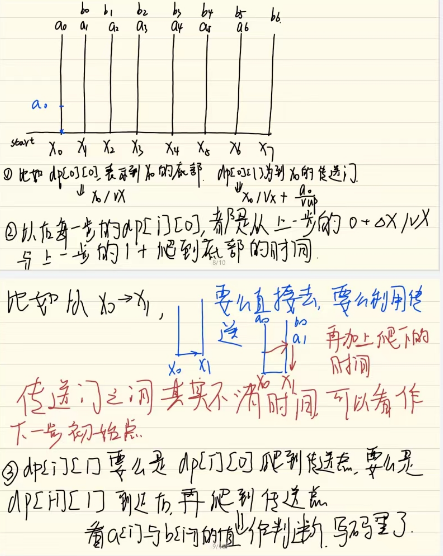 b₀ b₁ b₂ b₃ b₄ b₅ b₆
a₀ a₁ a₂ a₃ a₄ a₅ a₆
a₀
start X₀ X₁ X₂ X₃ X₄ X₅ X₆ X₇
① 比如 dp[0][0] 表示到 X₀ 的底部. dp[0][1] 为到 X₀ 的传送门
X₀/VX X₀/VX + a₀/Vup
② 以后每一步的 dp[i][0], 都是从上一步的 0 + ΔX/VX
与上一步的 1 + 爬到底部的时间.
8/10
比如从 X₀→X₁, 要么直接去, 要么利用传
送 a₀ b₀ a₁ 再加上爬下的
时间
X₀ X₁ X₀ X₁
传送门之间其实不消时间, 可以看作
下一步初始点
③ dp[i][1] 要么是 dp[i][0] 爬到传送点, 要么是
dp[i-1][1] 到这方, 再爬到传送点
看 a[i] 与 b[i-1] 的值 作判断, 写码里了.